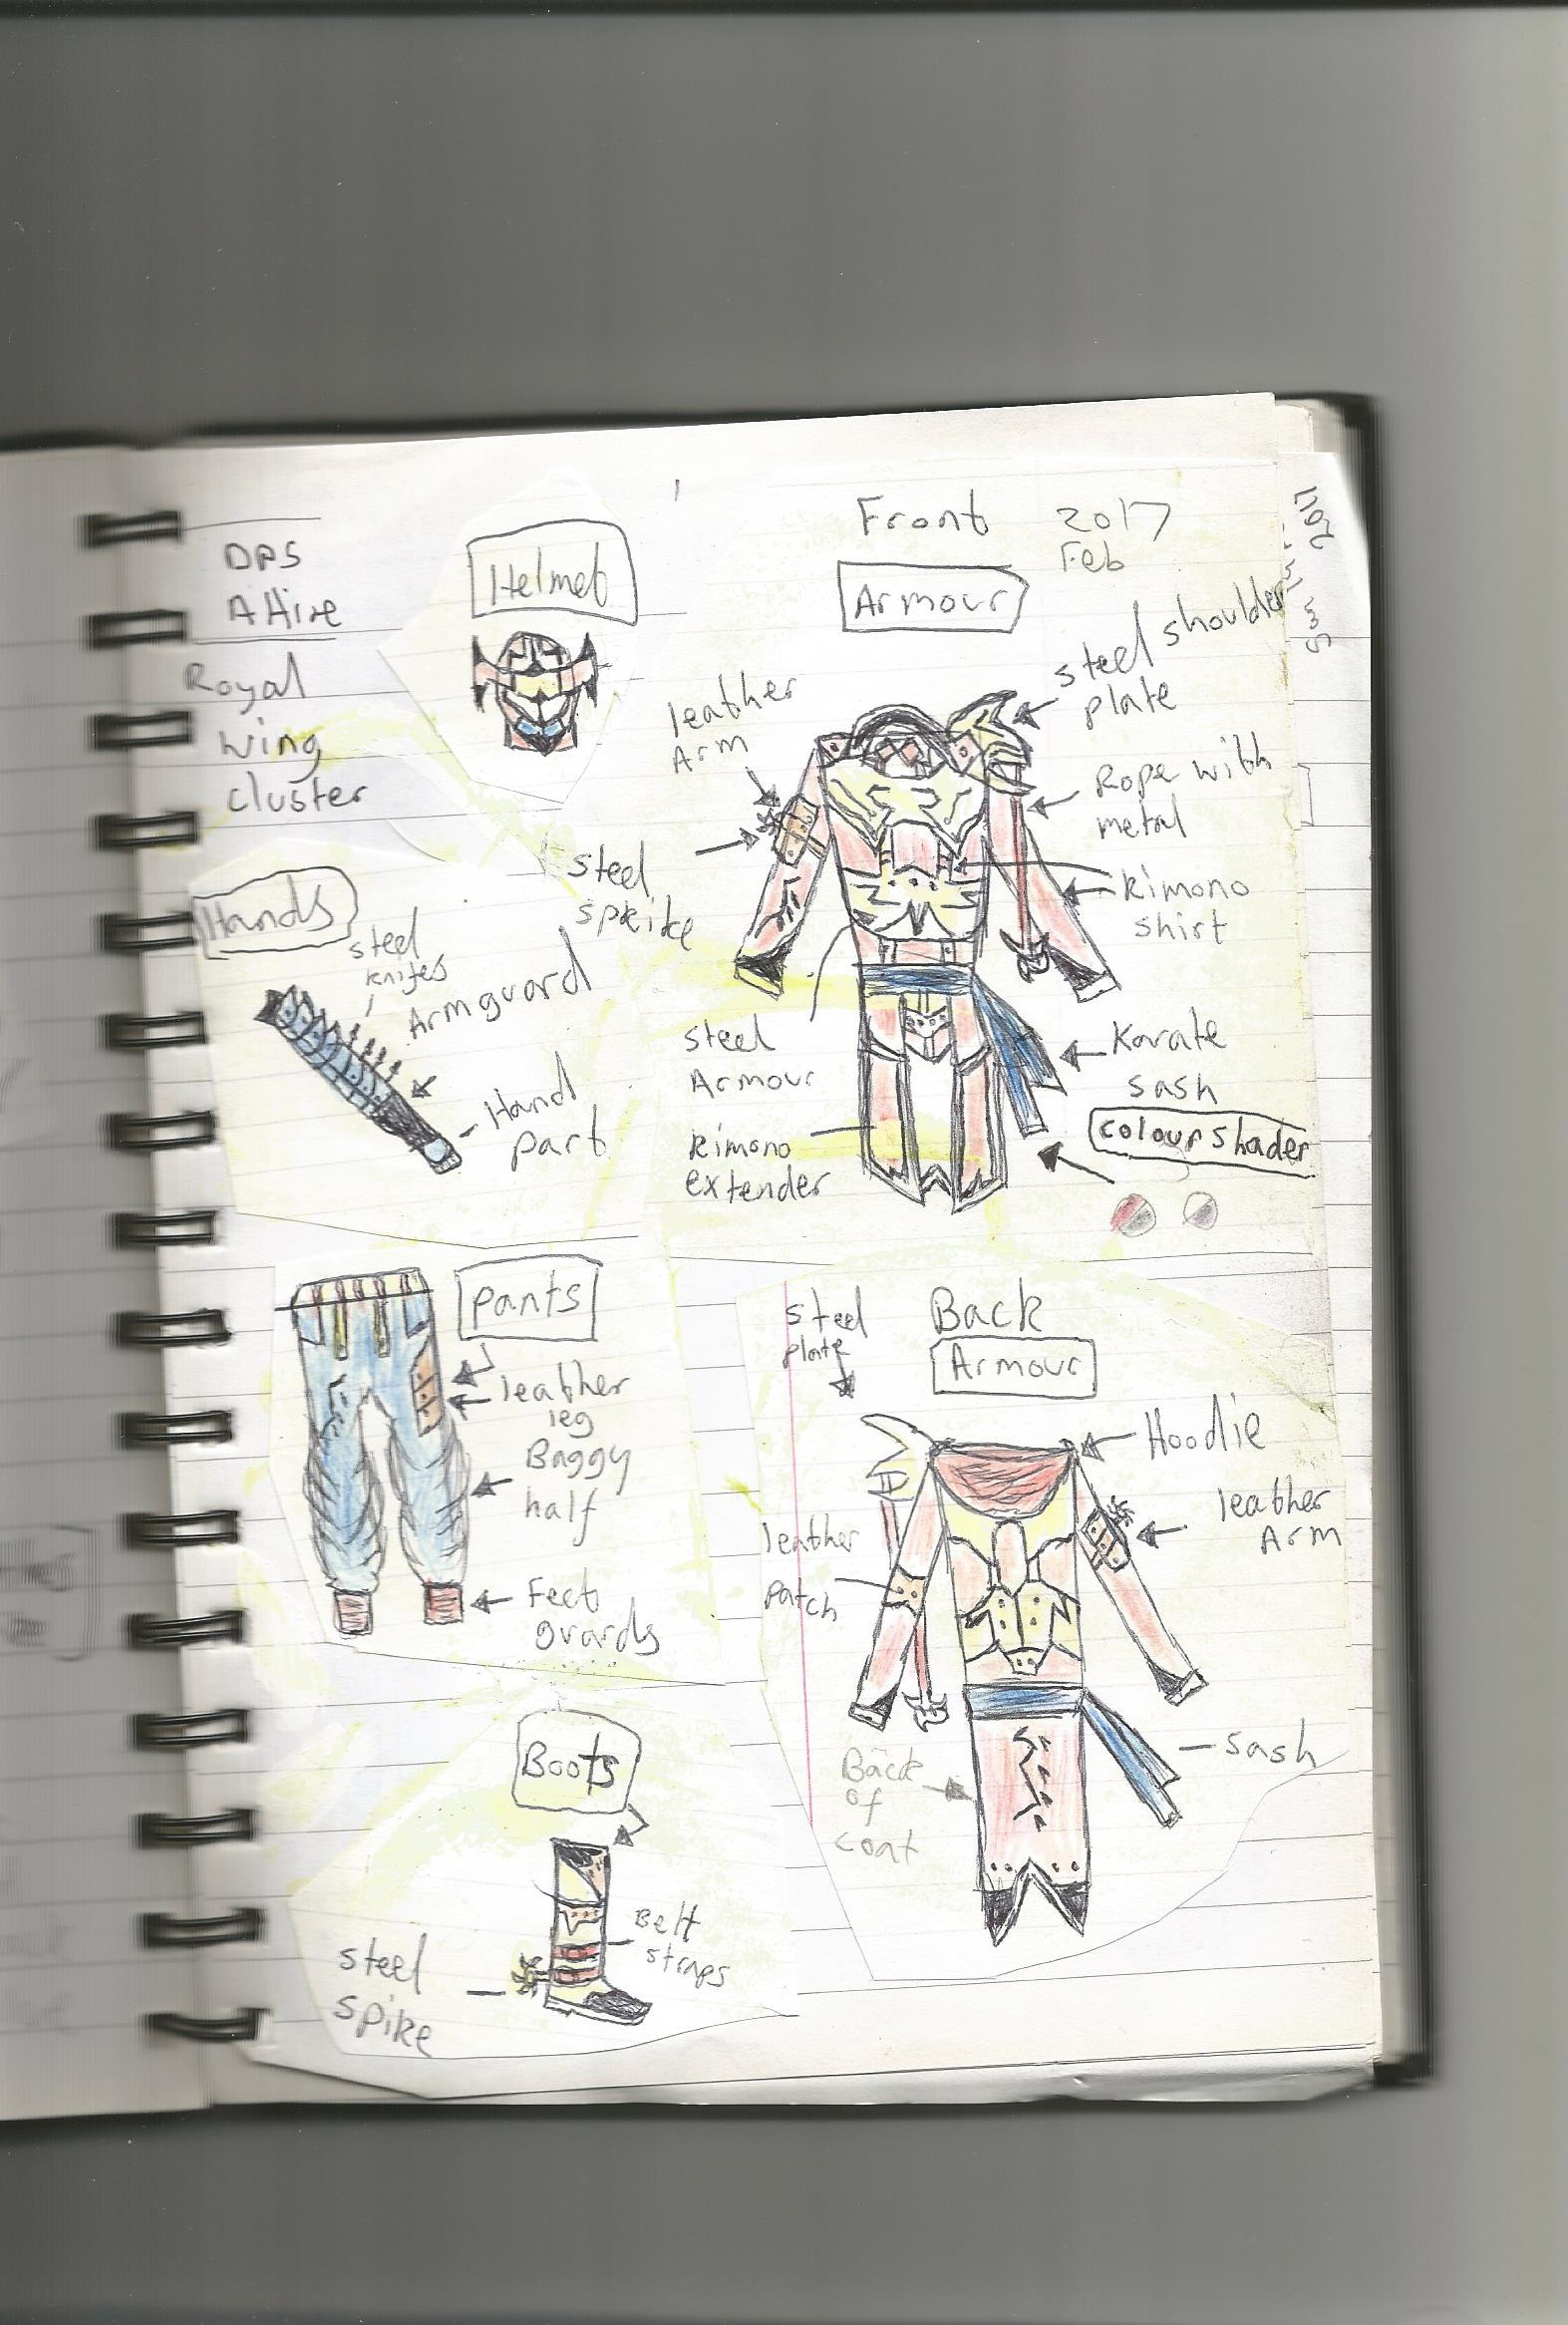 DPS
AHire
Royal
wing
cluster
Helmet
Front 2017
Feb
Armour
steel shoulder
plate
leather
Arm
Rope with
metal
steel
sprike
kimono
shirt
Hands
steel
knifes
Armguard
Hand
part
steel
Armour
Karate
sash
colour shader
kimono
extender
pants
leather
leg
Baggy
half
Feet
guards
steel
plate
Back
Armour
Hoodie
leather
Arm
leather
patch
sash
Back
of
coat
Boots
Belt
straps
steel
spike